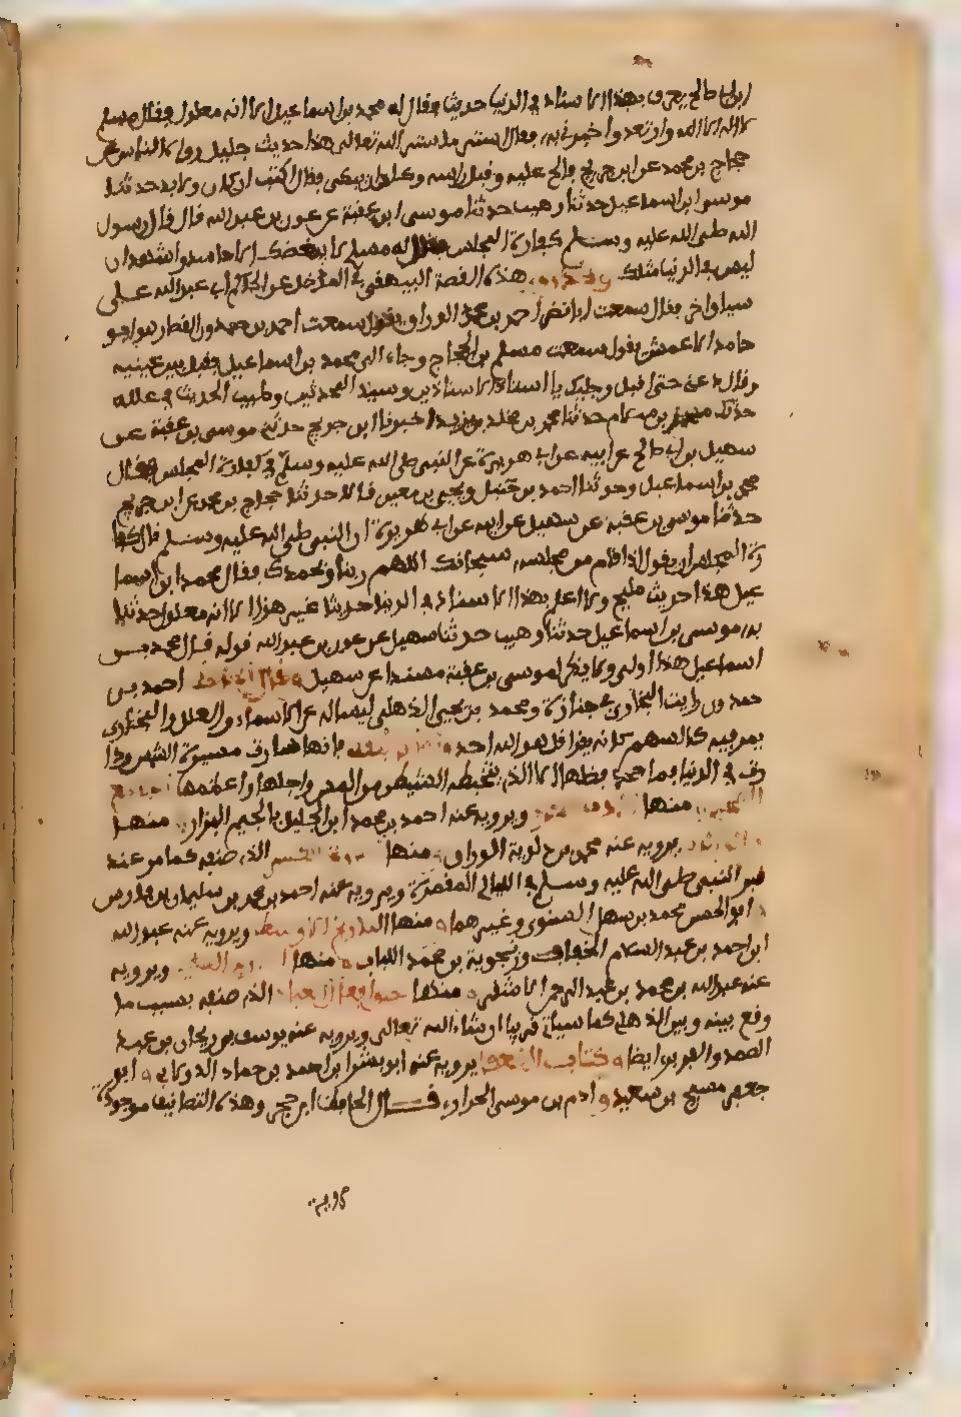 ابي صالح يعرف بهذا الاسناد في الدنيا حديثا فقال له محمد بن اسماعيل الا انه معلول فقال مسلم
لا اله الا الله وارتعد واخبرني به فقال استر ما ستر الله تعالى هذا حديث جليل رواه الناس عن
حجاج بن محمد عن ابن جريج فالح عليه وقبل راسه وكاد ان يبكي فقال اكتب ان كان ولا بد حدثنا
موسى ابن اسماعيل حدثنا وهيب حدثنا موسى ابن عقبة عن عون بن عبد الله قال قال رسول
الله صلى الله عليه وسلم كفارة المجلس فقال له مسلم لا يبغضك الا حاسد واشهد ان
ليس في الدنيا مثلك وقد روى هذه القصة البيهقي في المدخل عن الحاكم ابي عبد الله على
سياق اخر فقال سمعت ابا نصر احمد بن محمد الوراق يقول سمعت احمد بن حمدون القصار هو ابو
حامد الاعمش يقول سمعت مسلم بن الحجاج وجاء الى محمد بن اسماعيل فقبل بين عينيه
وقال دعني حتى اقبل رجليك يا استاذ الاستاذين وسيد المحدثين وطبيب الحديث في علله
حدثك محمد بن سلام حدثنا محمد بن مخلد بن يزيد اخبرنا ابن جريج حدثني موسى بن عقبة عن
سهيل بن ابي صالح عن ابيه عن ابي هريرة عن النبي صلى الله عليه وسلم في كفارة المجلس فقال
محمد بن اسماعيل وحدثنا احمد بن حنبل ويحيى بن معين قالا حدثنا حجاج بن محمد عن ابن جريج
حدثنا موسى بن عقبة عن سهيل عن ابيه عن ابي هريرة ان النبي صلى الله عليه وسلم قال كفا
رة المجلس ان يقول اذا قام من مجلسه سبحانك اللهم ربنا وبحمدك فقال محمد ابن اسما
عيل هذا حديث مليح ولا اعلم بهذا الاسناد في الدنيا حديثا غير هذا الا انه معلول حدثنا
به موسى بن اسماعيل حدثنا وهيب حدثنا سهيل عن عون بن عبد الله قوله قال محمد بن
اسماعيل هذا اولى ولا يذكر لموسى بن عقبة مسندا عن سهيل وقال الحافظ احمد بن
حمدون رايت البخاري في جنازة ومحمد بن يحيى الذهلي يساله عن الاسماء والعلل والبخاري
يمر فيه كالسهم كانه يقرا قل هو الله احد فانها سارت مسيرة الشمس ودا
رت في الدنيا فما جحد فضلها الا الذي يتخبطه الشيطان من المس واجلها واعظمها
منها ويرويه عنه احمد بن محمد ابن الجليل بالجيم البزار منها
يرويه عنه محمد بن دلوية الوراق منها الكبير الذي صنفه كما مر عند
قبر النبي صلى الله عليه وسلم في الليالي المقمرة ويرويه عنه احمد بن محمد بن سليمان بن فارس
وابو الحسن محمد بن سهل الفسوي وغيرهما منها التاريخ الاوسط ويرويه عنه عبد الله
ابن احمد بن عبد السلام الخفاف وزنجوية بن محمد اللباب منها ويرويه
عنه عبد الله بن محمد بن عبد الرحمن الاشقر منها خلق افعال العباد الذي صنفه بسبب ما
وقع بينه وبين الذهلي كما سياتي قريبا ان شاء الله تعالى ويرويه عنه يوسف بن ريحان بن عبد
الصمد والفربري ايضا وكتاب الضعفا يرويه عنه ابو بشر ابن احمد بن حماد الدولابي وابو
جعفر مسبح بن سعيد وادم بن موسى الحواري قال الحافظ ابن حجر وهذه التصانيف موجودة